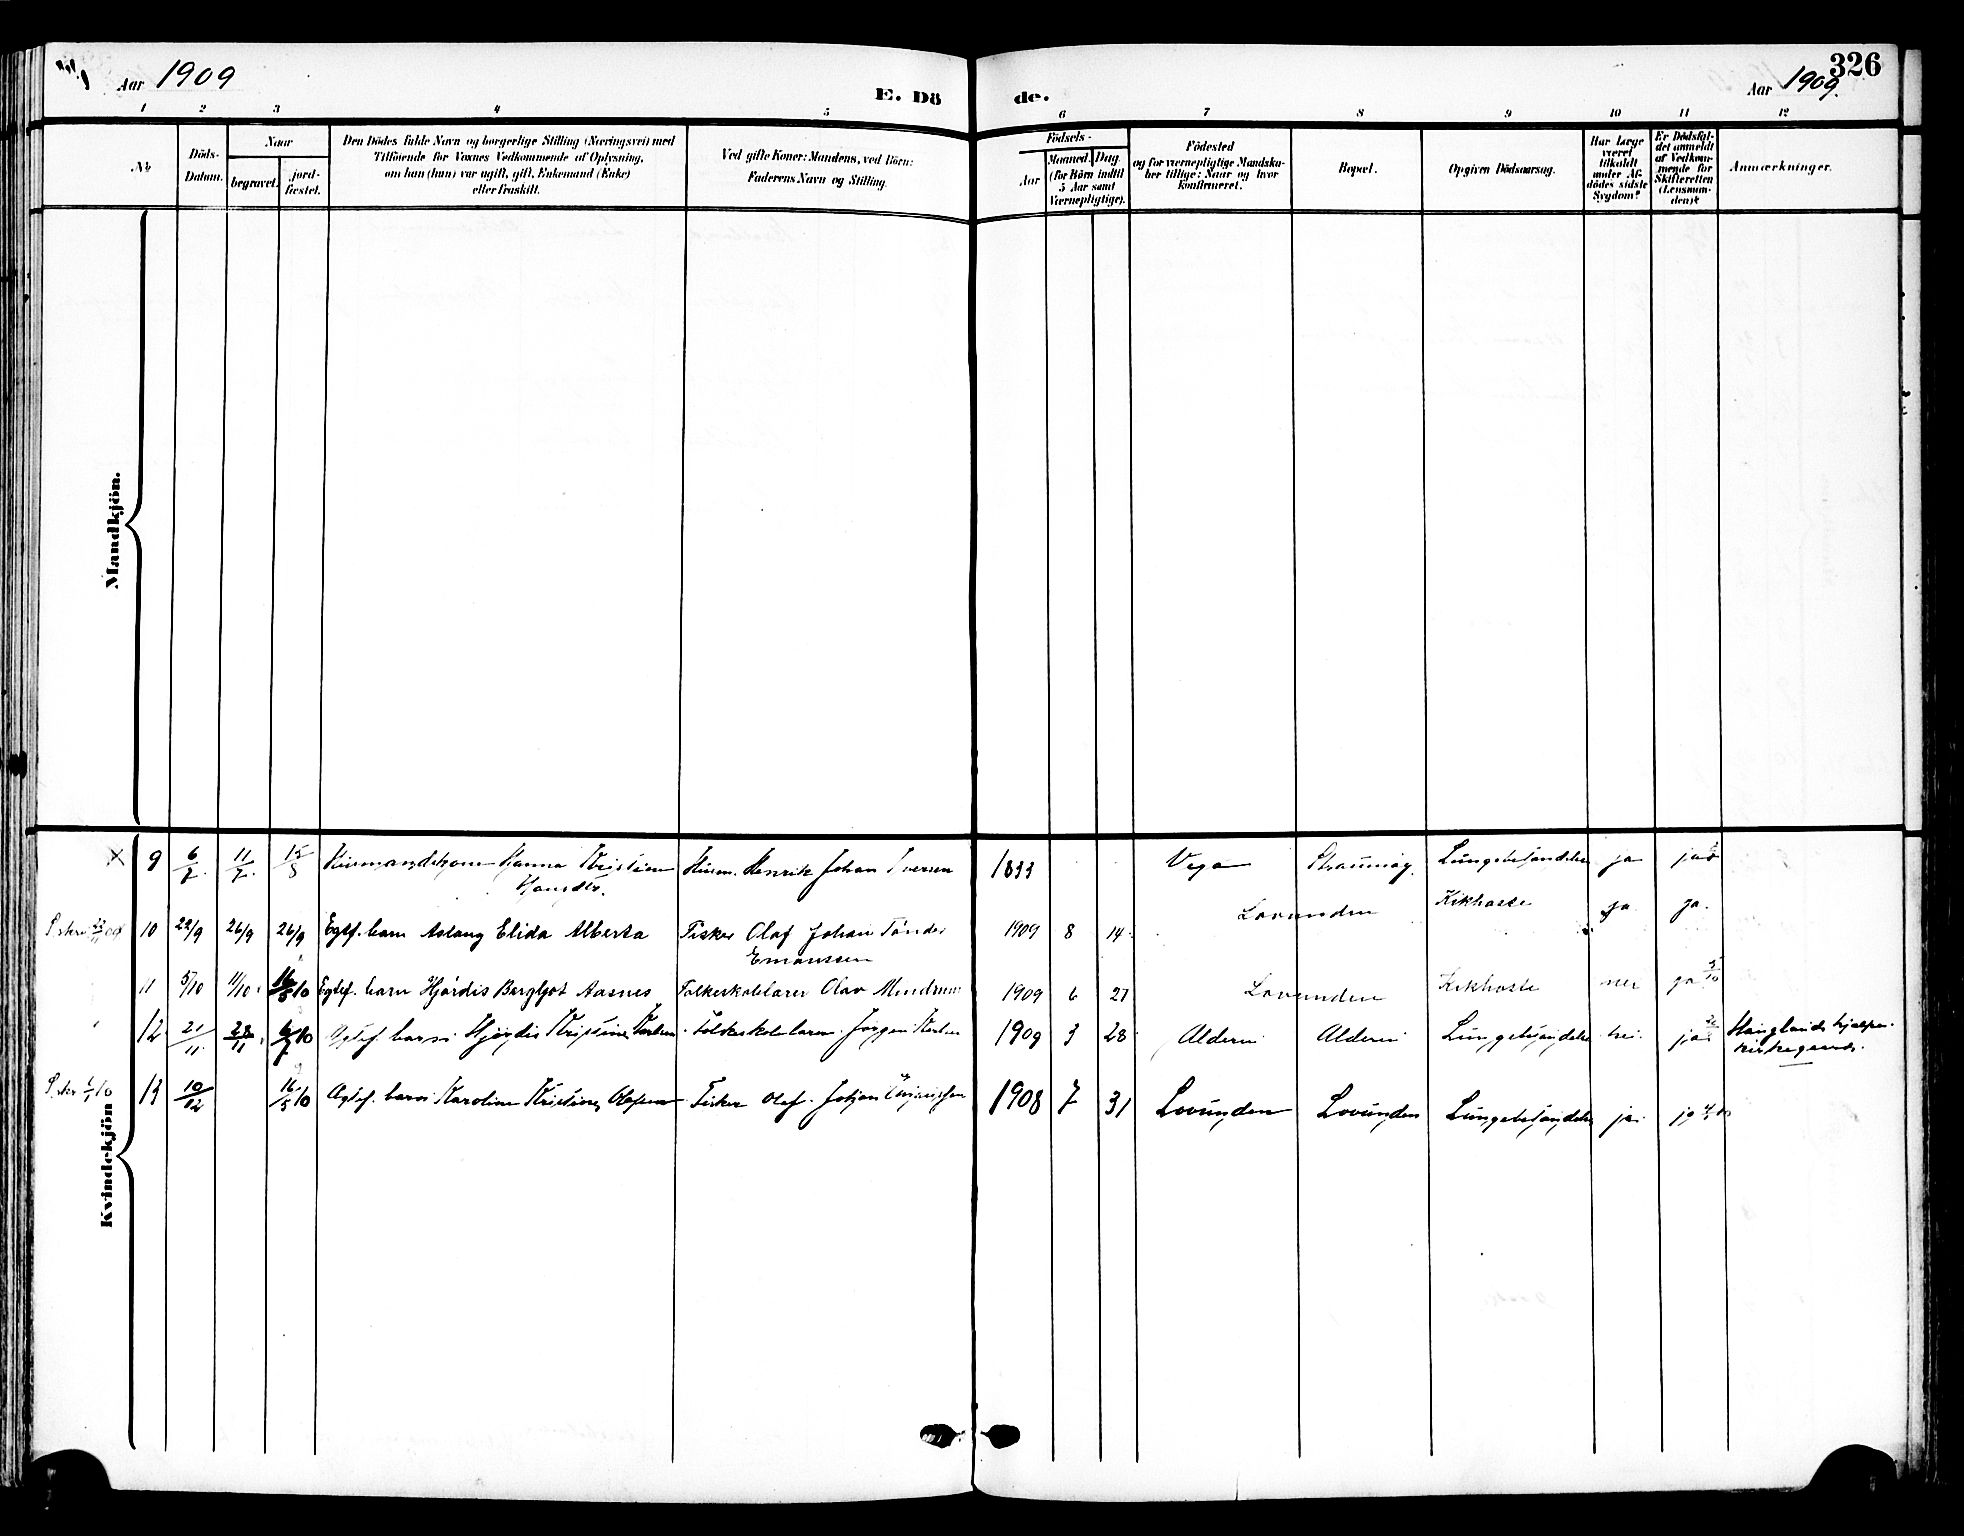 Aar 1909
E. Dö
de.
326
Aar 1909.
1 2 3 4 5 6 7 8 9 10 11 12
No.
Döds-
Datum.
Naar
begravet.
jord-
fæstet.
Den Dödes fulde Navn og borgerlige Stilling (Næringsvei) med
Tilföiende for Voxnes Vedkommende af Oplysning,
om han (hun) var ugift, gift, Enkemand (Enke)
eller fraskilt.
Ved gifte Koner: Mandens, ved Börn:
Faderens Navn og Stilling.
Födsels-
Aar
Maaned. Dag
(for Börn indtil
5 Aar samt
Værnepligtige).
Födested
og for værnepligtige Mandska-
ber tillige: Naar og hvor
konfirmeret.
Bopæl.
Opgiven Dödsaarsag.
Har Læge
været
tilkaldt
under Af-
dödes sidste
Sygdom?
Er Dödsfal-
det anmeldt
af Vedkom-
mende for
Skifteretten
(Lensman-
den)?
Anmærkninger.
Mandkjön.
Kvindekjön
9 6/7 11/7 Hanna Kristine Husm. Henrik Johan Iversen 1833 Vega Lungebetændelse ja ja
Hansdtr.
10 22/9 26/9 26/9 Egtef. barn Aslaug Elida Alberta Fisker Olaf Johan Tönder 1909 8 14 Lovunden Kikhoste ja ja
11 5/10 11/10 Egtef. barn Hjördis Bergljot Aasnes Folkeskolelærer Olav 1909 6 27 Lovunden Kikhoste nei ja 5/10
12 21/11 28/11 Ægtef. barn Hjördis Kristine Folkeskolelærer Jörgen 1909 3 28 Alderen Alderen Lungebetændelse nei ja
kirkegaard.
13 10/12 16/5 10 Ægtef. barn Karoline Kristine Olsen Fisker Olaf Johan 1908 7 31 Lovunden Lovunden Lungebetændelse ja ja